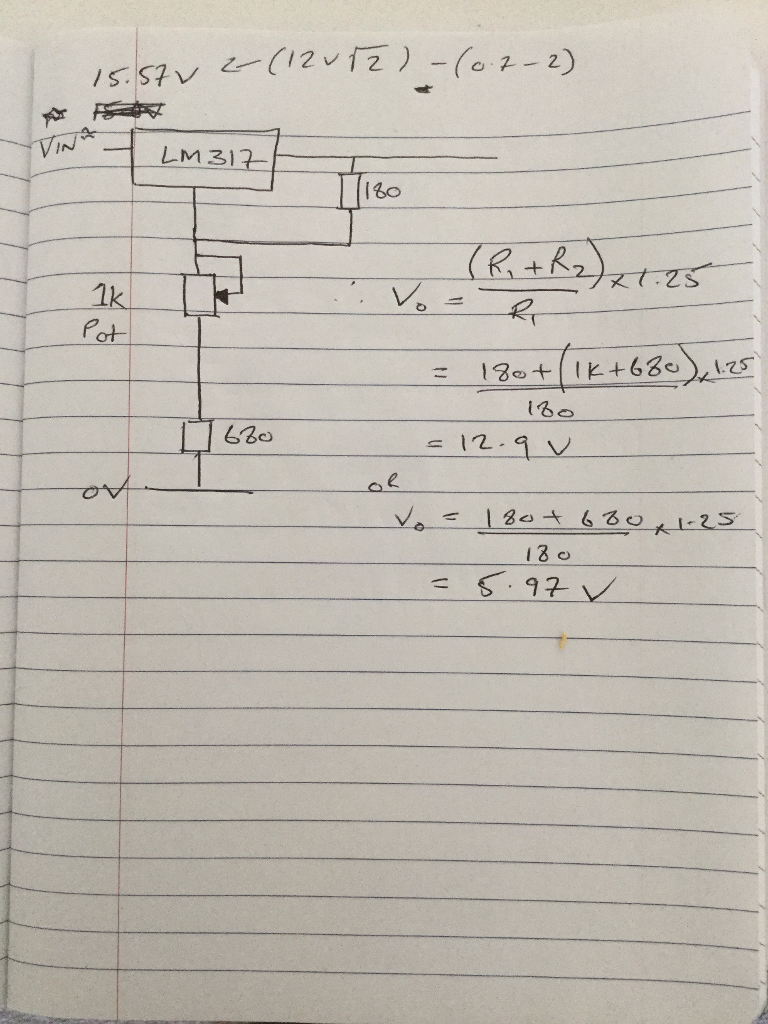 15.57V ← (12V√2) - (0.7-2)
VIN ≈
LM317
180
1k
Pot
∴ Vo = (R1+R2)/R1 x 1.25
= 180+(1K+680)/180 x 1.25
= 12.9 V
680
0V
OR
Vo = 180+680/180 x 1.25
= 5.97 V